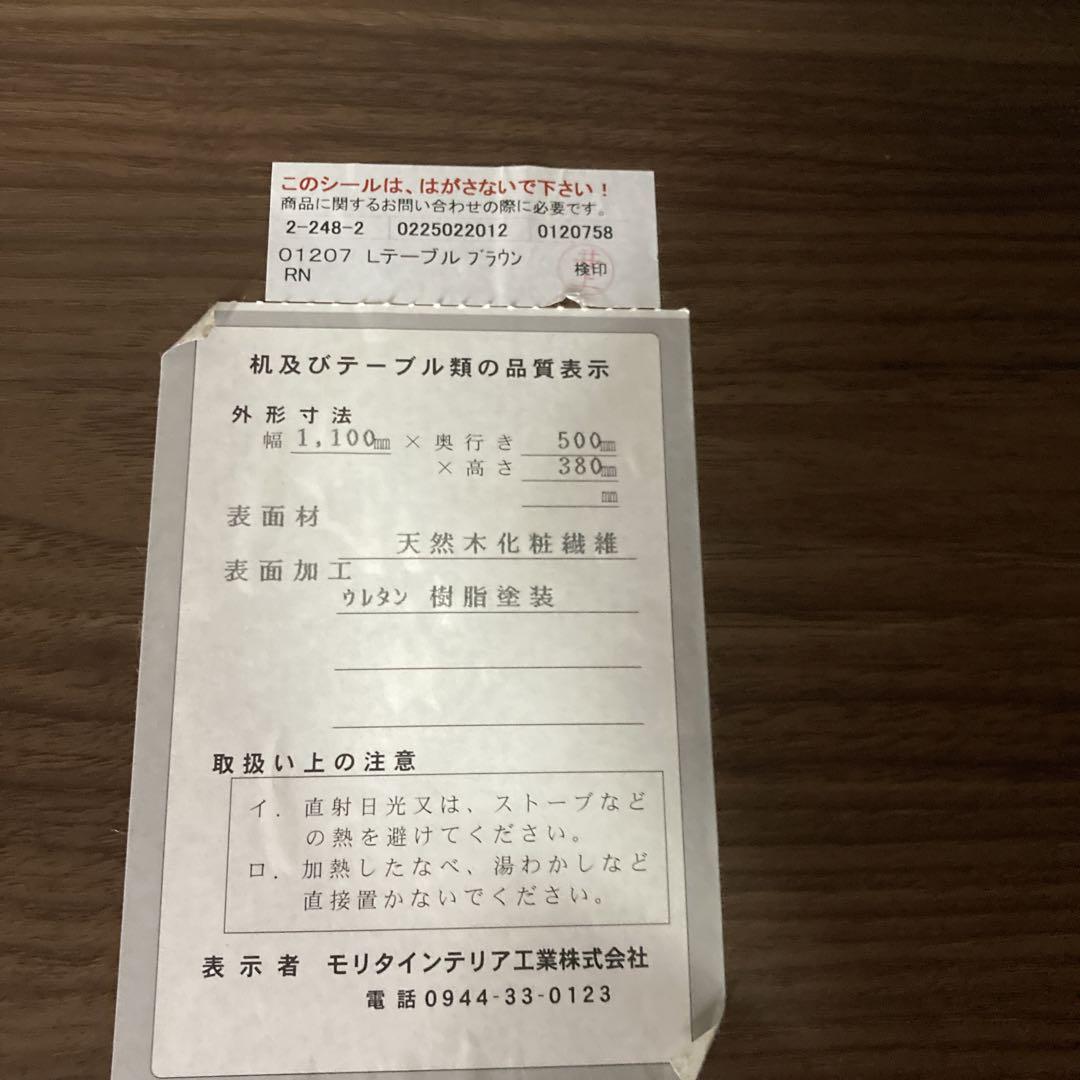 このシールは、はがさないで下さい！
商品に関するお問い合わせの際に必要です。
2-248-2 0225022012 0120758
01207 Lテーブル ﾌﾞﾗｳﾝ
RN 検印
机及びテーブル類の品質表示
外形寸法
幅 1,100㎜ × 奥行き 500㎜
× 高さ 380㎜
㎜
表面材
天然木化粧繊維
表面加工
ｳﾚﾀﾝ 樹脂塗装
取扱い上の注意
イ. 直射日光又は、ストーブなど
の熱を避けてください。
ロ. 加熱したなべ、湯わかしなど
直接置かないでください。
表示者 モリタインテリア工業株式会社
電話0944-33-0123